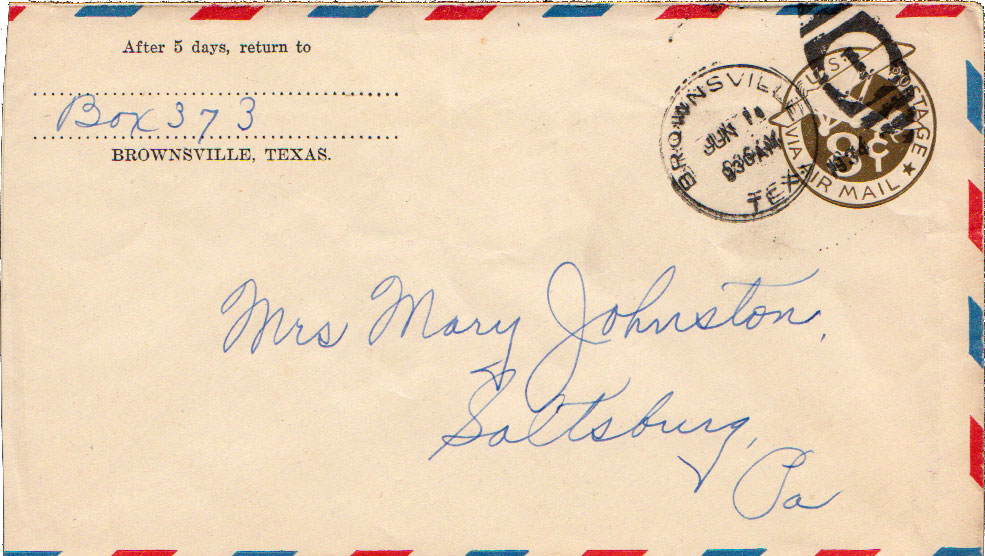 After 5 days, return to
Box 373
BROWNSVILLE, TEXAS.
BROWNSVILLE
JUN
930AM
1934
TEX
U.S. POSTAGE
8¢
VIA AIR MAIL
Mrs Mary Johnston,
Saltsburg,
Pa